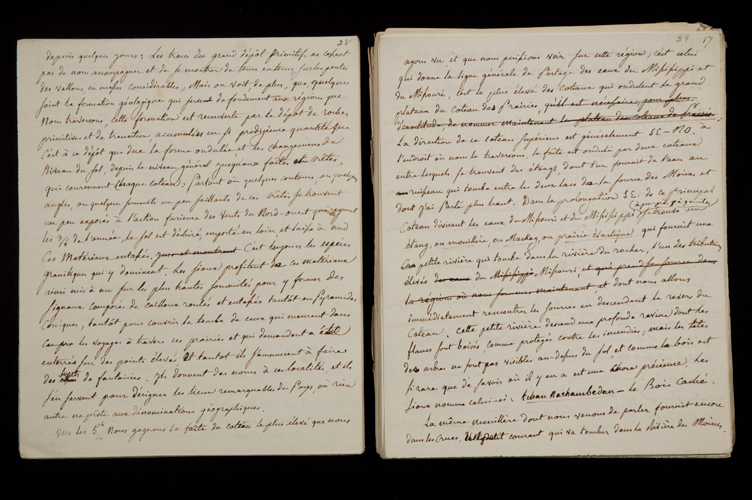 28
depuis quelques jours: Les traces du grand dépôt primitif, ne cessent
pas de nous accompagner et de se montrer de tems en tems, sur les pentes
des vallons, en masses considérables, Mais on voit de plus, que, quelque
soit la formation géologique qui sert de fondement aux régions que
Nous traversons, cette formation est recouverte par le dépôt de roches,
primitives et de transition accumulées en si prodigieuse quantité que
C'est à ce dépôt que due la forme ondulée et les changemens de
Niveau du sol, depuis le niveau général jusqu'aux crêtes,
qui couronnent chaque coteau: Partout où quelques contours, ou quelques
angles, ou quelques sommets un peu saillants de ces crêtes se trouvent
un peu exposés à l'action furieuse des vents du Nord-ouest qui règnent
les 3/4 de l'année, le sol est déchiré, emporté au loin, et laisse à nud
Ces Matériaux entassés, C'est toujours les espèces
granitiques qui y dominent. Les Sioux profitent de ces matériaux
ainsi mis à nu sur les plus hautes sommités pour y former des
Signaux composés de cailloux roulés et entassés tantôt en Pyramides
Conique, tantôt pour couvrir la tombe de ceux qui meurent dans
les voyages à travers ces prairies et qui demandent à être
enterrés sur des points élevés et tantôt ils s'amusent à faire
des de fantaisies. Ils donnent des noms à ces localités et ils
s'en servent pour désigner les lieux remarquables du Pays où rien
autre ne prête aux dénominations géographiques.
Vers les 5h Nous gagnons la faîte du coteau le plus élevé que nous
29 17
ayons vu et que nous puissions voir sur cette région; c'est celui
qui donne la ligne générale de Partage des eaux du Missisippi et
du Missouri, c'est le plus élevé des Coteaux qui ondulent le grand
plateau du Coteau des Prairies, qu'il est nécessaire pour plus
d'exactitude, de nommer maintenant le plateau des coteaux de prairie.
La direction de ce coteau supérieur est généralement SE-NO, à
l'endroit où nous le traversons, le faîte est ondulé par deux coteaux
entre lesquels se trouvent des étangs, dont l'un fournit de l'eau au
ruisseau qui tombe entre les deux lacs de la source des Moines et
dont j'ai Parlé plus haut. Dans la prolongation SE de ce Principal
Coteau divisant les eaux du Missouri et du Missisippi se trouve un
étang, ou mouillère, ou Marhay, ou prairie élastique qui fournit une
petite rivière qui tombe dans la rivière du rocher, l'un des tributaires
élevés du Missouri et qui prend sa source dans
la région où nous sommes maintenant et dont nous allons
immédiatement rencontrer les sources en descendant le revers du
Coteau. cette petite rivière descend une profonde ravine dont les
flancs sont boisés, comme protégés contre les incendies, mais les têtes
des arbres ne sont pas visibles au dessus du sol et comme le bois est
si rare que de savoir où il y en a est une chose précieuse; les
Sioux nomme celui-ci: tchan Narhambedan - le Bois Caché.
La même mouillère dont nous venons de parler fournit encore
dans les crues, un petit courant qui va tomber dans la Rivière des Moines.